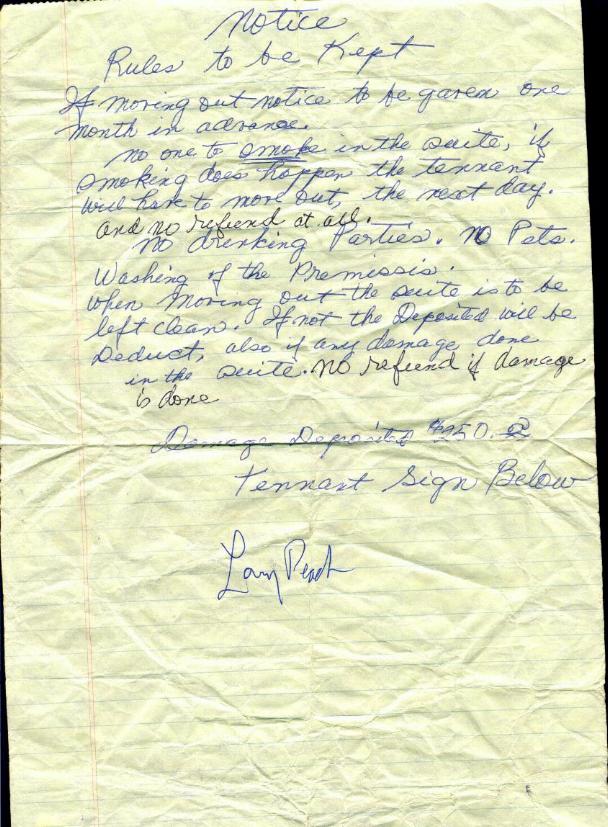 Notice
Rules to be Kept
If moving out notice to be gaven one
month in advance.
no one to smoke in the suite, if
smoking does happen the tennant
will have to move out, the next day.
and no refiend at all.
No drinking Parties. No Pets.
Washing of the Premissis.
when moving out the suite is to be
left clean. If not the Deposited will be
Deduct, also if any damage done
in the suite. No refiend if damage
is done
Damage Deposited $250.
Tennant Sign Below